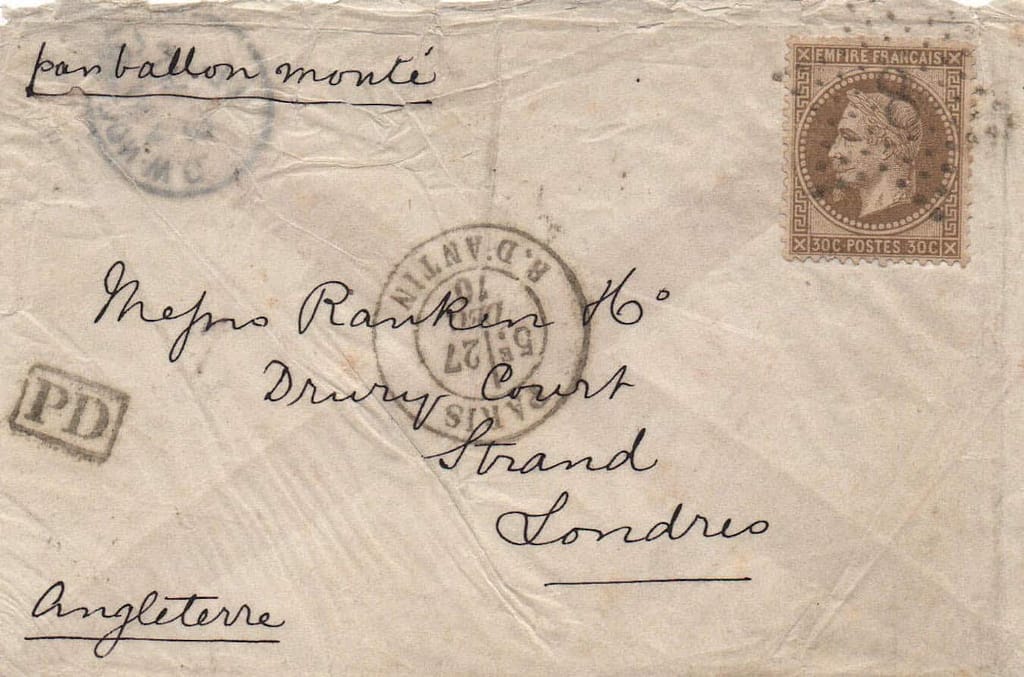 par ballon monté
EMPIRE FRANÇAIS
30C POSTES 30C
PARIS
R. D'ANTIN
5E 27
DEC
70
PD
Messrs Ranken & Ho
Drury Court
Strand
Londres
Angleterre